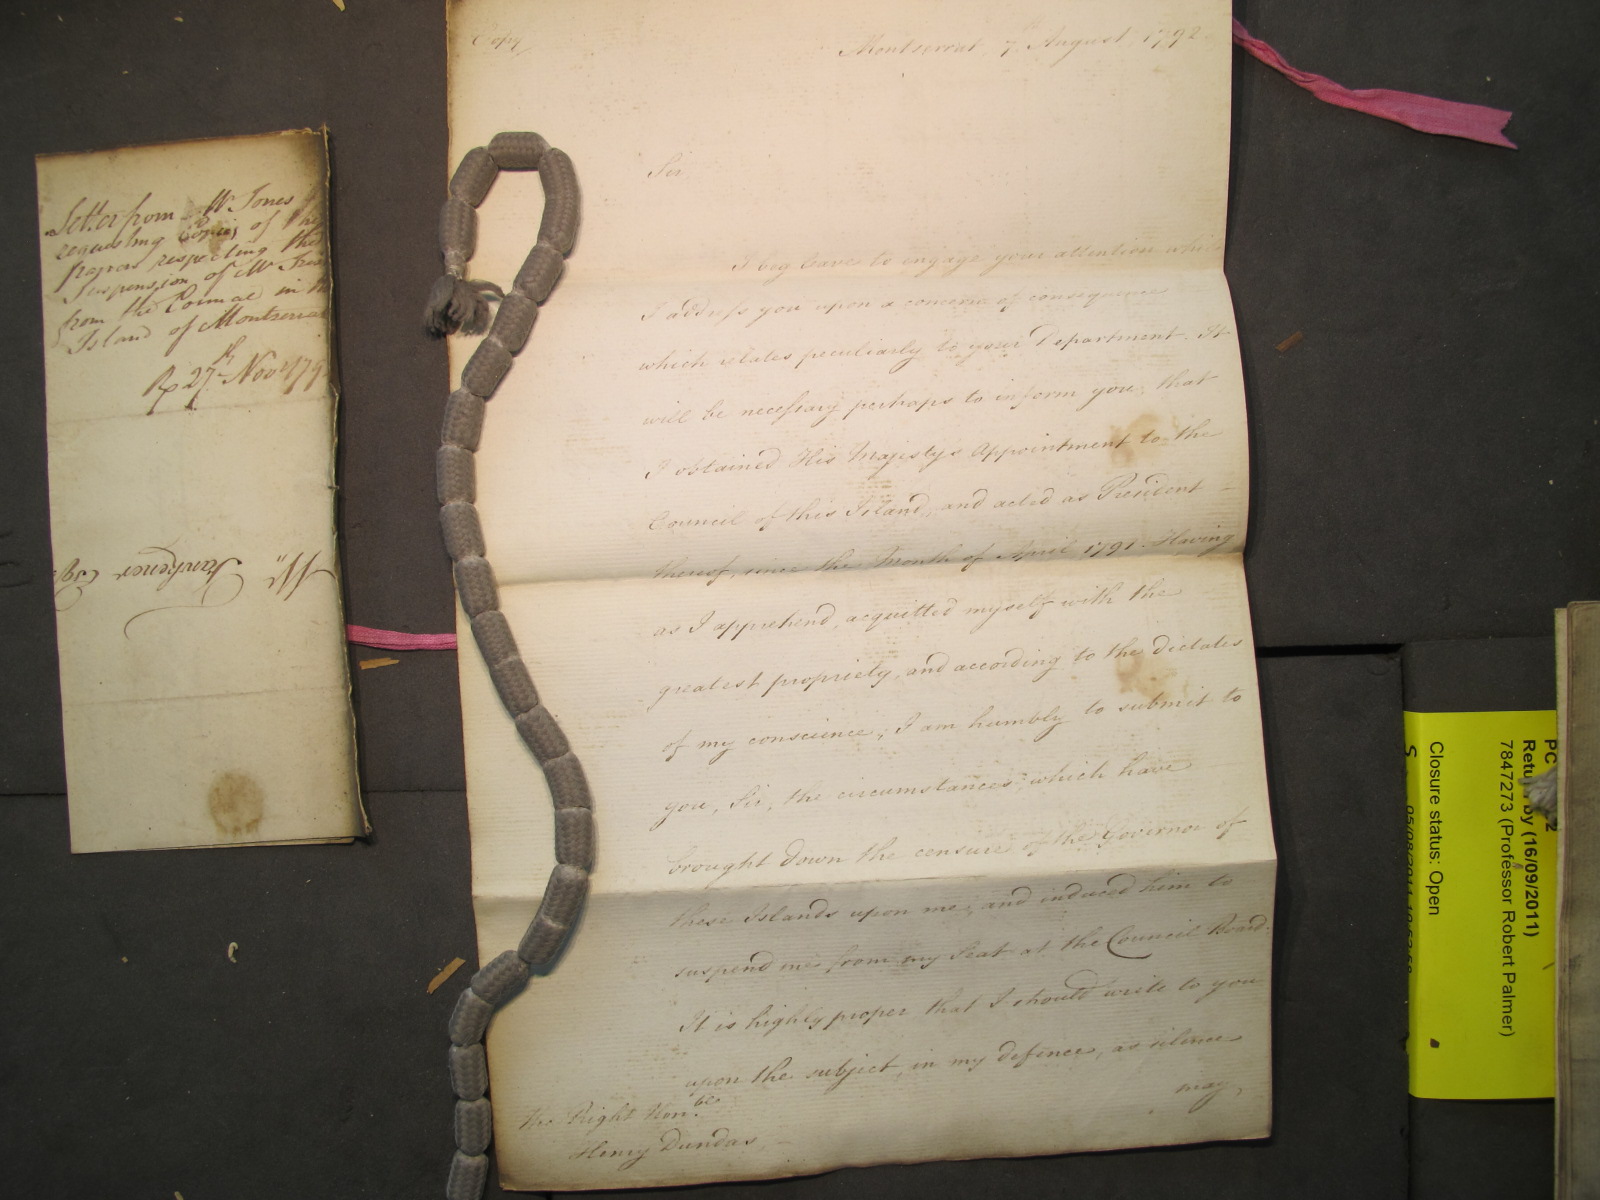 Letter from Mr Jones
requesting Copies of the
papers respecting the
Suspension of Mr
from the Council in
Island of Montserrat
27th Novr 179
W. Fawkener Esqr
Copy
Montserrat, 7th August, 1792.
Sir
I beg leave to engage your attention while
I address you upon a concern of consequence
which relates peculiarly to your Department. It
will be necessary perhaps to inform you, that
I obtained His Majestys Appointment to the
Council of this Island, and acted as President
thereof, since the Month of April 1791. Having
as I apprehend, acquitted myself with the
greatest propriety, and according to the dictates
of my conscience; I am humbly to submit to
you, Sir, the circumstances which have
brought down the censure of the Governor of
these Islands upon me, and induced him to
suspend me from my Seat at the Council Board.
It is highly proper that I should write to you
upon the subject, in my defence, as silence
may,
The Right Honble
Henry Dundas
PC 2
Return by (16/09/2011)
7847273 (Professor Robert Palmer)
Closure status: Open